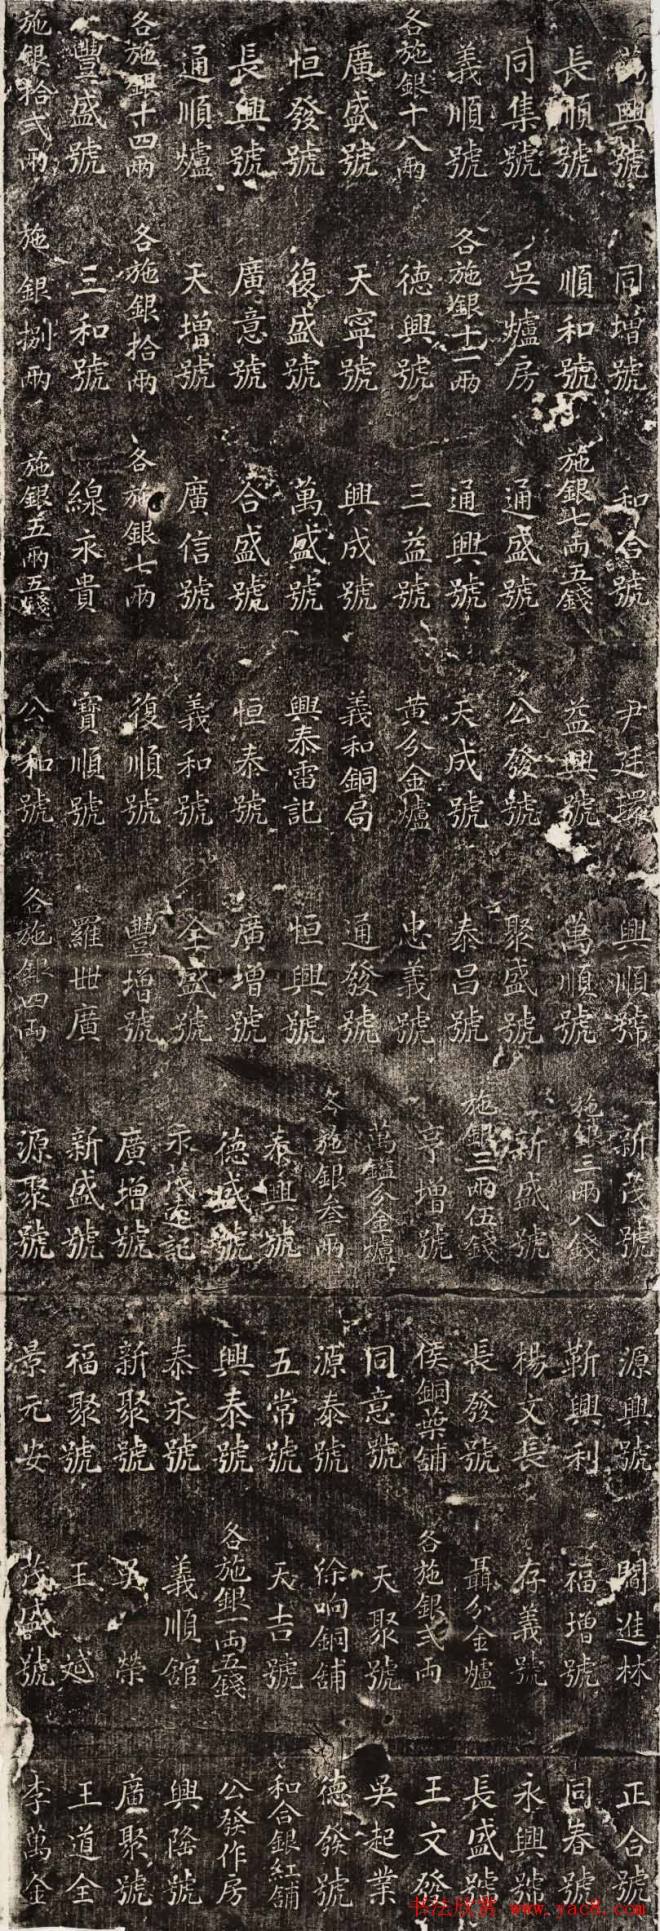 興號
長順號
同集號
義順號
各施銀十八兩
廣盛號
恒發號
長興號
通順爐
各施銀十四兩
豐盛號
施銀拾弍兩
同增號
順和號
吳爐房
各施銀十二兩
德興號
天寧號
復盛號
廣意號
天增號
各施銀拾兩
三和號
施銀捌兩
和合號
施銀七兩五錢
通盛號
通興號
三益號
興成號
萬盛號
合盛號
廣信號
各施銀七兩
線永貴
施銀五兩五錢
尹廷環
益興號
公發號
天成號
黃分金爐
義和銅局
興泰雷記
恒泰號
義和號
復順號
寶順號
公和號
興順號
萬順號
聚盛號
泰昌號
忠義號
通發號
恒興號
廣增號
全盛號
豐增號
羅世廣
各施銀四兩
新茂號
施銀三兩八錢
新盛號
施銀三兩伍錢
亨增號
萬鎰分金爐
各施銀叁兩
泰興號
德盛號
永茂通記
廣增號
新盛號
源聚號
源興號
靳興利
楊文長
長發號
侯銅葉舖
同意號
源泰號
五常號
興泰號
泰永號
新聚號
福聚號
景元安
閻進林
福增號
存義號
聶分金爐
各施銀弍兩
天聚號
徐响銅舖
天吉號
各施銀一兩五錢
義順舘
吳榮
王斌
茂盛號
正合號
同春號
永興號
長盛號
王文發
吳起業
德發號
和合銀紅舖
公發作房
興隆號
廣聚號
王道全
李萬金
书法欣赏 www.yac8.com